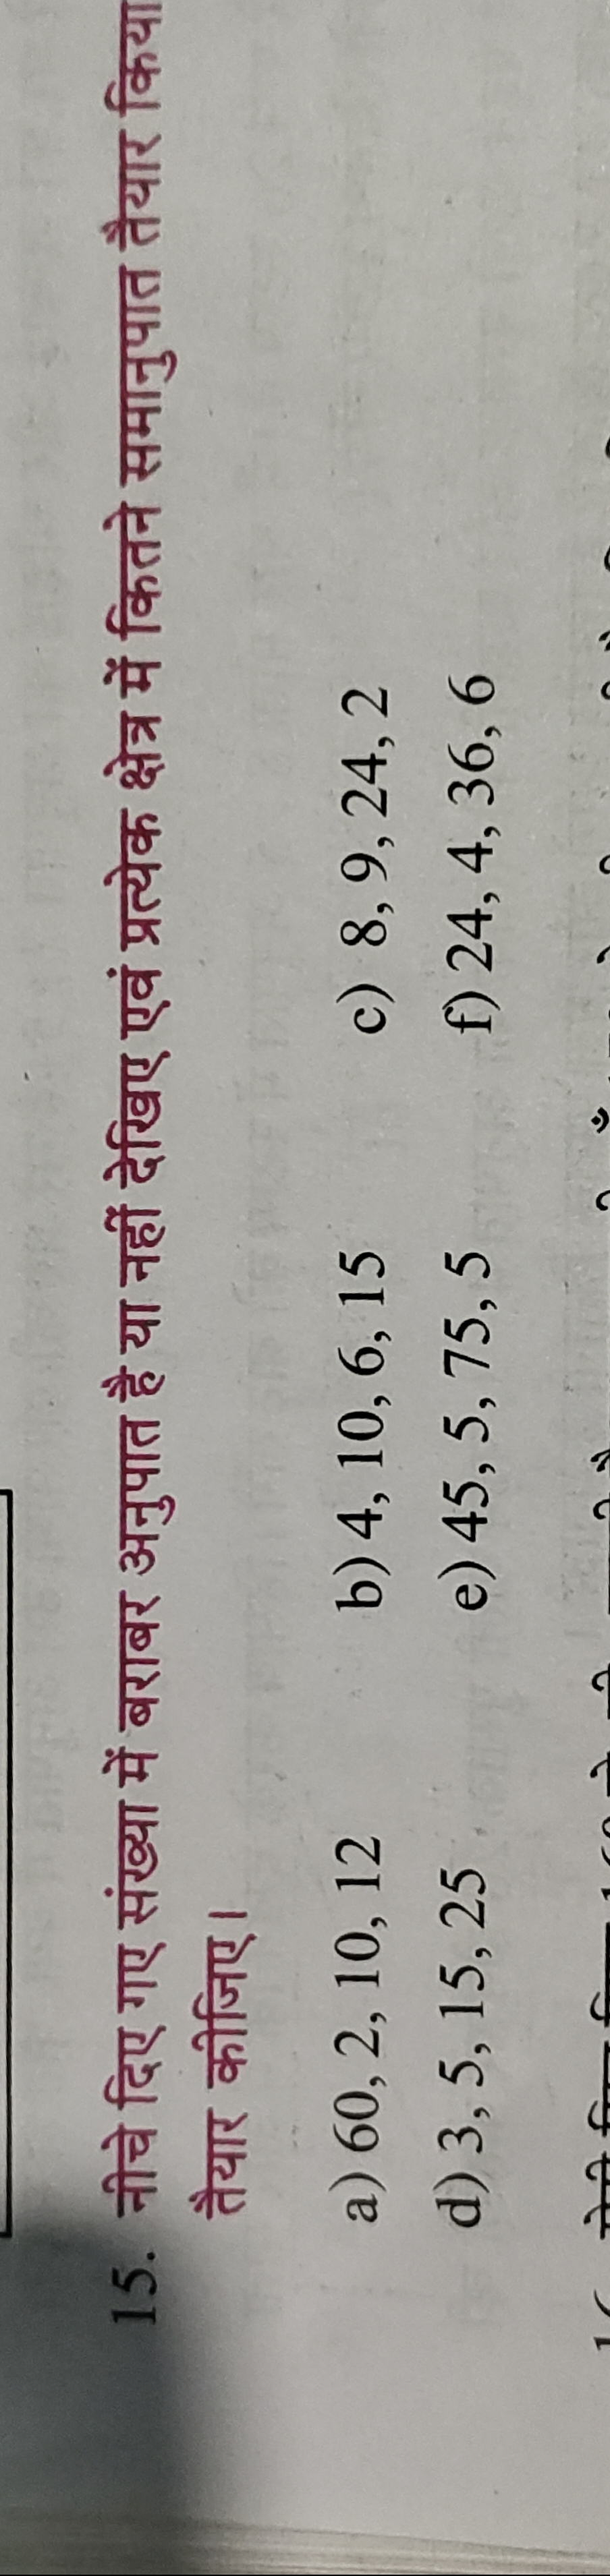 15. नीचे दिए गए संख्या में बराबर अनुपात है या नहीं देखिए एवं प्रत्येक क्षेत्र में कितने समानुपात तैयार किया
तैयार कीजिए।
a) 60, 2, 10, 12 b) 4, 10, 6, 15 c) 8, 9, 24, 2
d) 3, 5, 15, 25 e) 45, 5, 75, 5 f) 24, 4, 36, 6